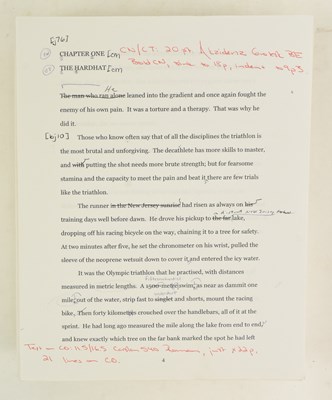 [bj76]
CHAPTER ONE [cn
CN/CT: 20 pt.
THE HARDHAT [cn
The man who ran alone He leaned into the gradient and once again fought the
enemy of his own pain. It was a torture and a therapy. That was why he
did it.
[bj10] Those who know often say that of all the disciplines the triathlon is
the most brutal and unforgiving. The decathlete has more skills to master,
and with putting the shot needs more brute strength; but for fearsome
stamina and the capacity to meet the pain and beat it, there are few trials
like the triathlon.
The runner in the New Jersey sunrise had risen as always on his
training days well before dawn. He drove his pickup to the far lake,
dropping off his racing bicycle on the way, chaining it to a tree for safety.
At two minutes after five, he set the chronometer on his wrist, pulled the
sleeve of the neoprene wetsuit down to cover it, and entered the icy water.
It was the Olympic triathlon that he practised, with distances
measured in metric lengths. A 1500-metre swim, as near as dammit one
mile, out of the water, strip fast to singlet and shorts, mount the racing
bike. Then forty kilometres crouched over the handlebars, all of it at the
sprint. He had long ago measured the mile along the lake from end to end,
and knew exactly which tree on the far bank marked the spot he had left
4